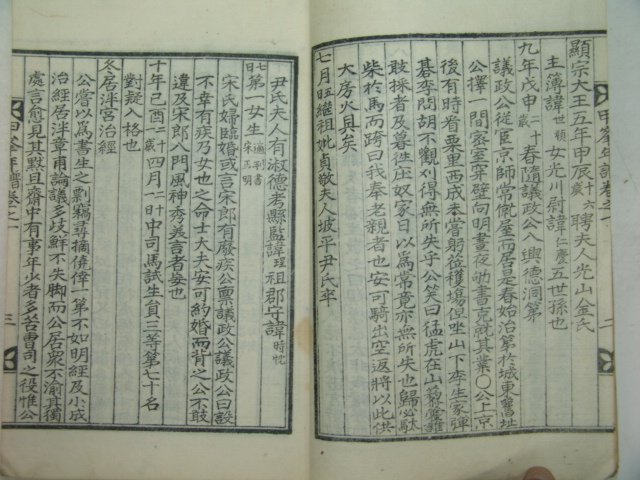 顯宗大王五年甲辰十六歲聘夫人光山金氏
主簿諱世頗女光川尉諱仁慶五世孫也
九年戊申二十歲春隨議政公入興德洞第
議政公從宦京師常僦屋而居是春始治第於城東舊址
公擇一間密室穿壁向明晝夜劬書克就其業○公上京
後有時看粟東西成本嘗躬後穫場但坐山下李生家彈
碁李問胡不觀刈得無所失乎公笑曰猛虎在山藜藿雖
敢採者及暮徃庄奴家日以爲常竟亦無所失也歸必駄
柴於馬而跨曰我奉老親者也安可騎出空返將以此供
大房火具矣
七月丑継祖妣貞敬夫人坡平尹氏卒
尹氏夫人有淑德考縣監諱珵祖郡守諱時忱
七日第一女生適判書宋正明
宋氏婦臨婚或言宋郎有廢疾公稟議政公議政公曰設
不幸有疾乃女也之命士大夫安可約婚而背之公不敢
違及宋郎入門風神秀美言者妄也
十年己酉二十歲四月二十日中司馬試生員三等第七十名
對疑入格也
冬居泮宮治經
公嘗以爲書生之剽竊尋摘僥倖一第不如明經及小成
治經居泮章甫論議多歧鮮不失脚而公居衆不渝其獨
處言愈見其默且齋中有事年少者多苦曹司之役惟公
甲峯年譜卷之一
二
三